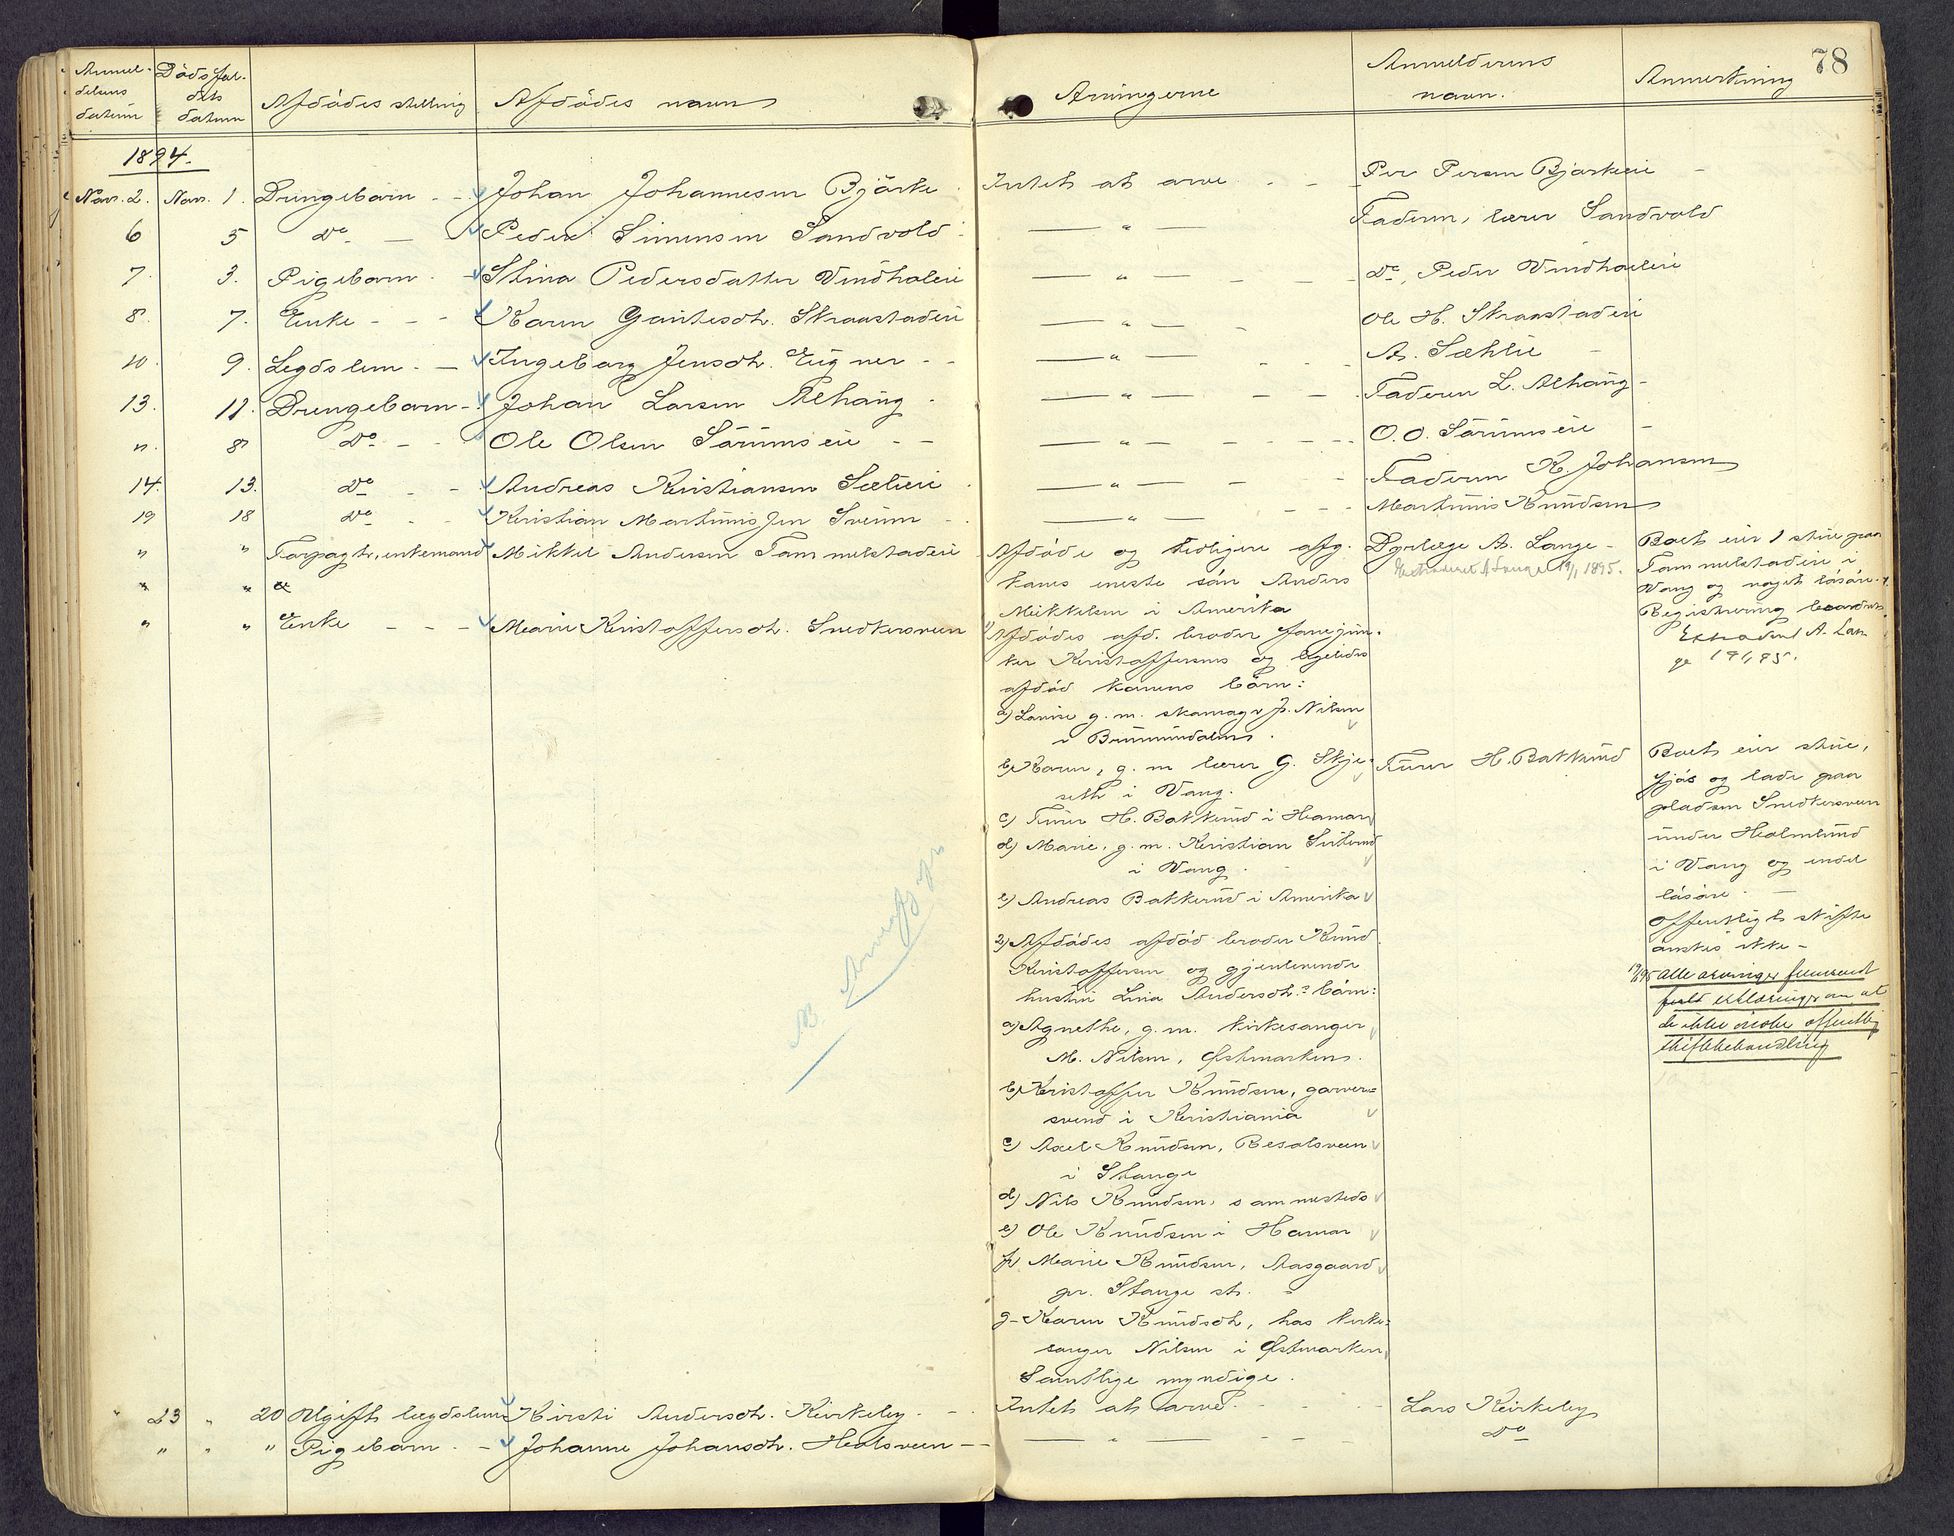 78
Anmel-
delsens
datum
Dödsfal-
dets
datum
Afdödes stilling
Afdödes navn
Arvingerne
Anmelderens
navn.
Anmerkning
1894.
Nov. 2. Nov. 1. Drengebarn - - Johan Johannesen Bjärke. Intet at arve - - - Per Persen Bjørkeeie -
6 5 Do - Peder Simensen Sandvold - " - Faderen, lærer Sandvold
7. 3. Pigebarn - Stina Pedersdatter Vindhaleie - " - - - - Do, Peder Vindhaleie
8. 7. Enke - - - Karen Gautesdh. Skraastadeie - " - - Ole H. Skraastadeie
10. 9. Legdslem - - Ingeborg Jensdh. Eügner - - - " - - - A. Sæhlie -
13. 11. Drengebarn - Johan Larsen Alhaug - - " - - - Faderen L. Alhaug -
" 8 Do - - Ole Olsen Sörumseie - - - " - - - - O. O. Sörumseie -
14. 13. Do - - Andreas Kristiansen Sælieie - - " - - - Faderen K. Johansen
19 18 Do - - Kristian Martinius Jen Sveum - - " - - - - Martinius Knudsen
" " Forpagtr., enkemand Mikkel Andersen Tommelstadeie
Afdöde og tidligere afg.
kones eneste sön Anders
Mikkelsen i Amerika
Dyrlæge A. Lange -
Extraderet A Lange 19/1 1895.
Boet eier 1 stue paa
Tommelstadeie i
Vang og noget lösöre.
Registrering
Extraderet A. Lan
ge 19/1 95.
" " Enke - - - Marie Kristoffersdh. Snedkersveen
1) Afdödes afd. broder
Kristoffersens og ligeledes
afdöd kones börn:
a) Lovise g. m. skomagr P. Nilsen
i Brumunddalen.
b) Karen, g. m. lærer G. Skje-
seth i Vang.
c) Furer H. Bakkerud i Hamar
d) Marie, g. m. Kristian
i Vang.
e) Andreas Bakkerud i Amerika
2) Afdödes afdöd broder Knud
Kristoffersen og gjenlevende
hustru Lina Andersdh.s börn:
a) Agnethe, g. m. kirkesanger
M. Nilsen, Østmarken.
b) Kristoffer Knudsen, garver-
svend i Kristiania
c) Axel Knudsen,
i Stange
d) Nils Knudsen, sammesteds
e) Ole Knudsen i Hamar
f) Marie Knudsen, Aasgaard
pr. Stange st.
g - Karen Knudsdh, hos kirke-
sanger Nilsen i Østmarken
Samtlige myndige.
Furer H. Bakkerud
Boet eier stue,
fjös og lade paa
pladsen Snedkersveen
under Holmlund
i Vang og endel
lösöre. -
Offentligt skifte
önskes ikke -
alle arvinger fremsendt
erklæringer om at
de ikke önsker offentlig
skiftebehandling
NB. Arveafg.
" 23 " 20 Ugift lægdslem Kirsti Andersdh. Kirkeby - - Intet at arve. - - - Lars Kirkeby
" " " " Pigebarn - - Johanne Johansdh. Holsveen - - " - - - - Do